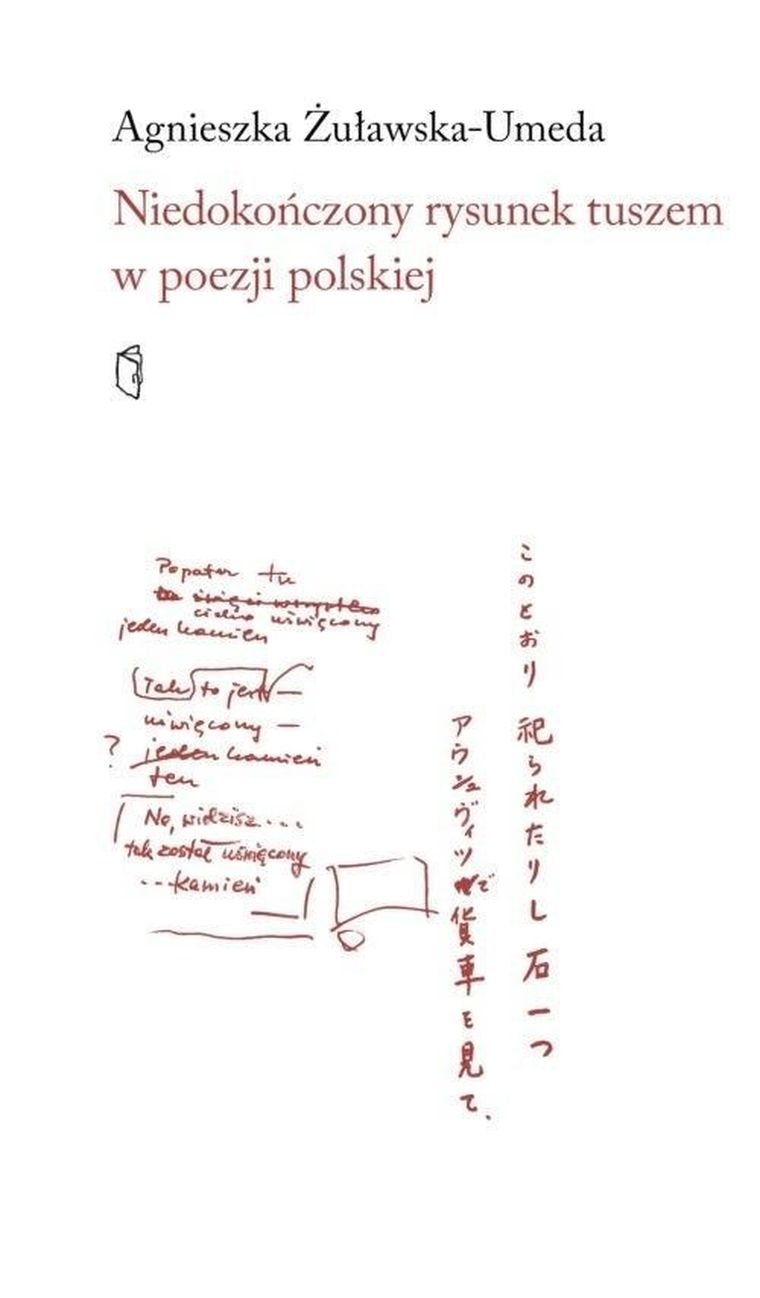 Agnieszka Żuławska-Umeda
Niedokończony rysunek tuszem
w poezji polskiej
Popatrz tu
uświęcony
jeden kamień
Tak to jest —
uświęcony —
? jeden kamień
ten
No, widzisz...
tak został uświęcony
...kamień
このとおり 祀られたりし 石一つ
アウシュヴィッツで貨車を見て.